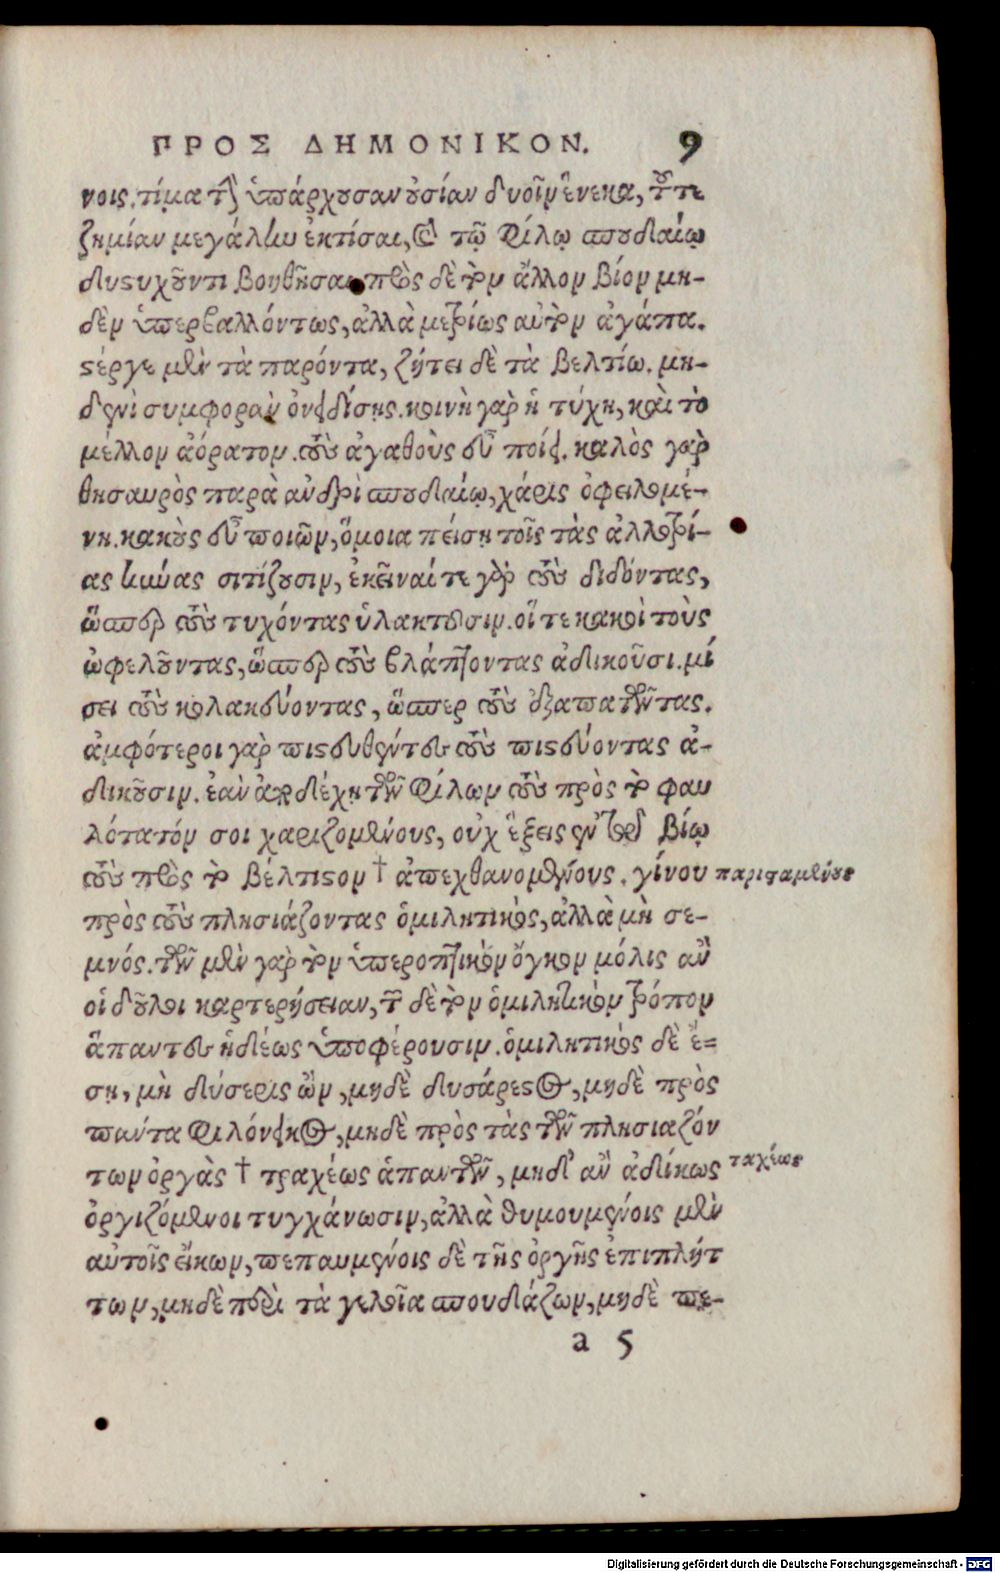 ΠΡΟΣ ΔΗΜΟΝΙΚΟΝ. 9
νοις. τίμα τὴν ὑπάρχουσαν οὐσίαν δυοῖν ἕνεκα, τοῦ τε
ζημίαν μεγάλην ἐκτίσαι, καὶ τῷ φίλῳ σπουδαίῳ
δυστυχοῦντι βοηθῆσαι. πρὸς δὲ τὸν ἄλλον βίον μη-
δὲν ὑπερβαλλόντως, ἀλλὰ μετρίως αὐτὸν ἀγάπα.
στέργε μὲν τὰ παρόντα, ζήτει δὲ τὰ βελτίω. μη-
δενὶ συμφορὰν ὀνειδίσῃς. κοινὴ γὰρ ἡ τύχη, καὶ τὸ
μέλλον ἀόρατον. τοὺς ἀγαθοὺς εὖ ποίει. καλὸς γὰρ
θησαυρὸς παρὰ ἀνδρὶ σπουδαίῳ, χάρις ὀφειλομέ-
νη. κακοὺς εὖ ποιῶν, ὅμοια πείσῃ τοῖς τὰς ἀλλοτρί-
ας κύνας σιτίζουσιν, ἐκεῖναί τε γὰρ τοὺς διδόντας,
ὥσπερ τοὺς τυχόντας ὑλακτοῦσιν. οἵ τε κακοὶ τοὺς
ὠφελοῦντας, ὥσπερ τοὺς βλάπτοντας ἀδικοῦσι. μί
σει τοὺς κολακεύοντας, ὥσπερ τοὺς ἐξαπατῶντας.
ἀμφότεροι γὰρ πιστευθέντες τοὺς πιστεύοντας ἀ-
δικοῦσιν. ἐὰν ἀποδέχῃ τῶν φίλων τοὺς πρὸς τὸ φαυ
λότατόν σοι χαριζομένους, οὐχ ἕξεις ἐν τῷ βίῳ
τοὺς πρὸς τὸ βέλτιστον † ἀπεχθανομένους. γίνου παρισταμένους
πρὸς τοὺς πλησιάζοντας ὁμιλητικὸς, ἀλλὰ μὴ σε-
μνός. τῶν μὲν γὰρ τὸν ὑπεροπτικὸν ὄγκον μόλις ἂν
οἱ δοῦλοι καρτερήσειαν, τῶν δὲ τὸν ὁμιλητικὸν τρόπον
ἅπαντες ἡδέως ὑποφέρουσιν. ὁμιλητικὸς δὲ ἔ=
σῃ, μὴ δύσερις ὢν, μηδὲ δυσάρεστος, μηδὲ πρὸς
πάντα φιλόνεικος, μηδὲ πρὸς τὰς τῶν πλησιαζόν
των ὀργὰς † τραχέως ἀπαντῶν, μηδ' ἂν ἀδίκως ταχέως
ὀργιζόμενοι τυγχάνωσιν, ἀλλὰ θυμουμένοις μὲν
αὐτοῖς εἴκων, πεπαυμένοις δὲ τῆς ὀργῆς ἐπιπλήτ
των, μηδὲ περὶ τὰ γελοῖα σπουδάζων, μηδὲ πε-
a 5
Digitalisierung gefördert durch die Deutsche Forschungsgemeinschaft - DFG